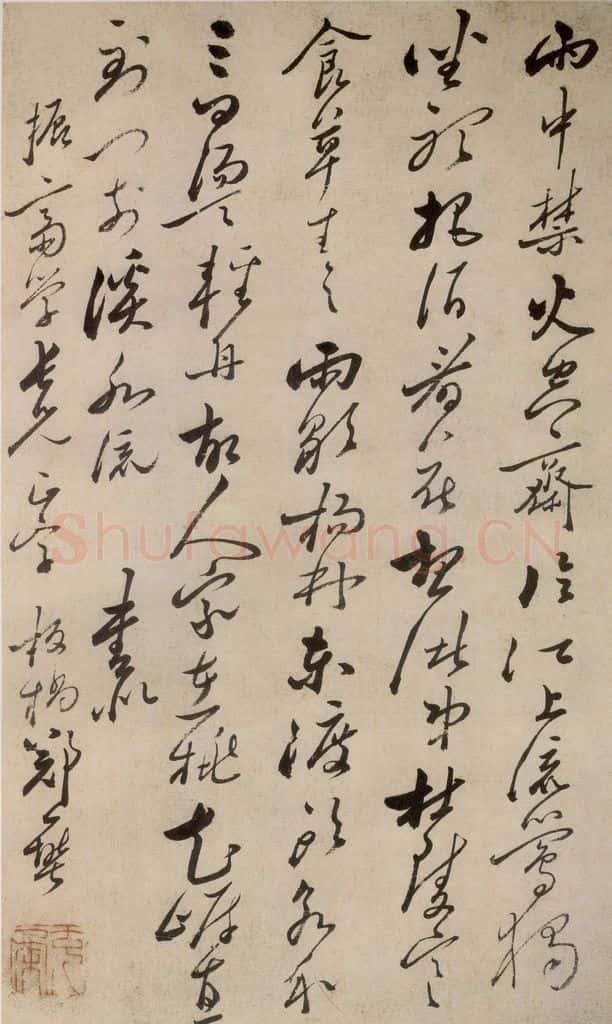 雨中禁火空齋冷江上流鶯獨
坐聽把酒看花想諸弟杜陵寒
食草青〻雨歇楊林東渡頭永和
三日盪輕舟故人家在桃花岸直
到門前溪水流 書似
振學長兄正字 板橋鄭燮
Shufawang.CN